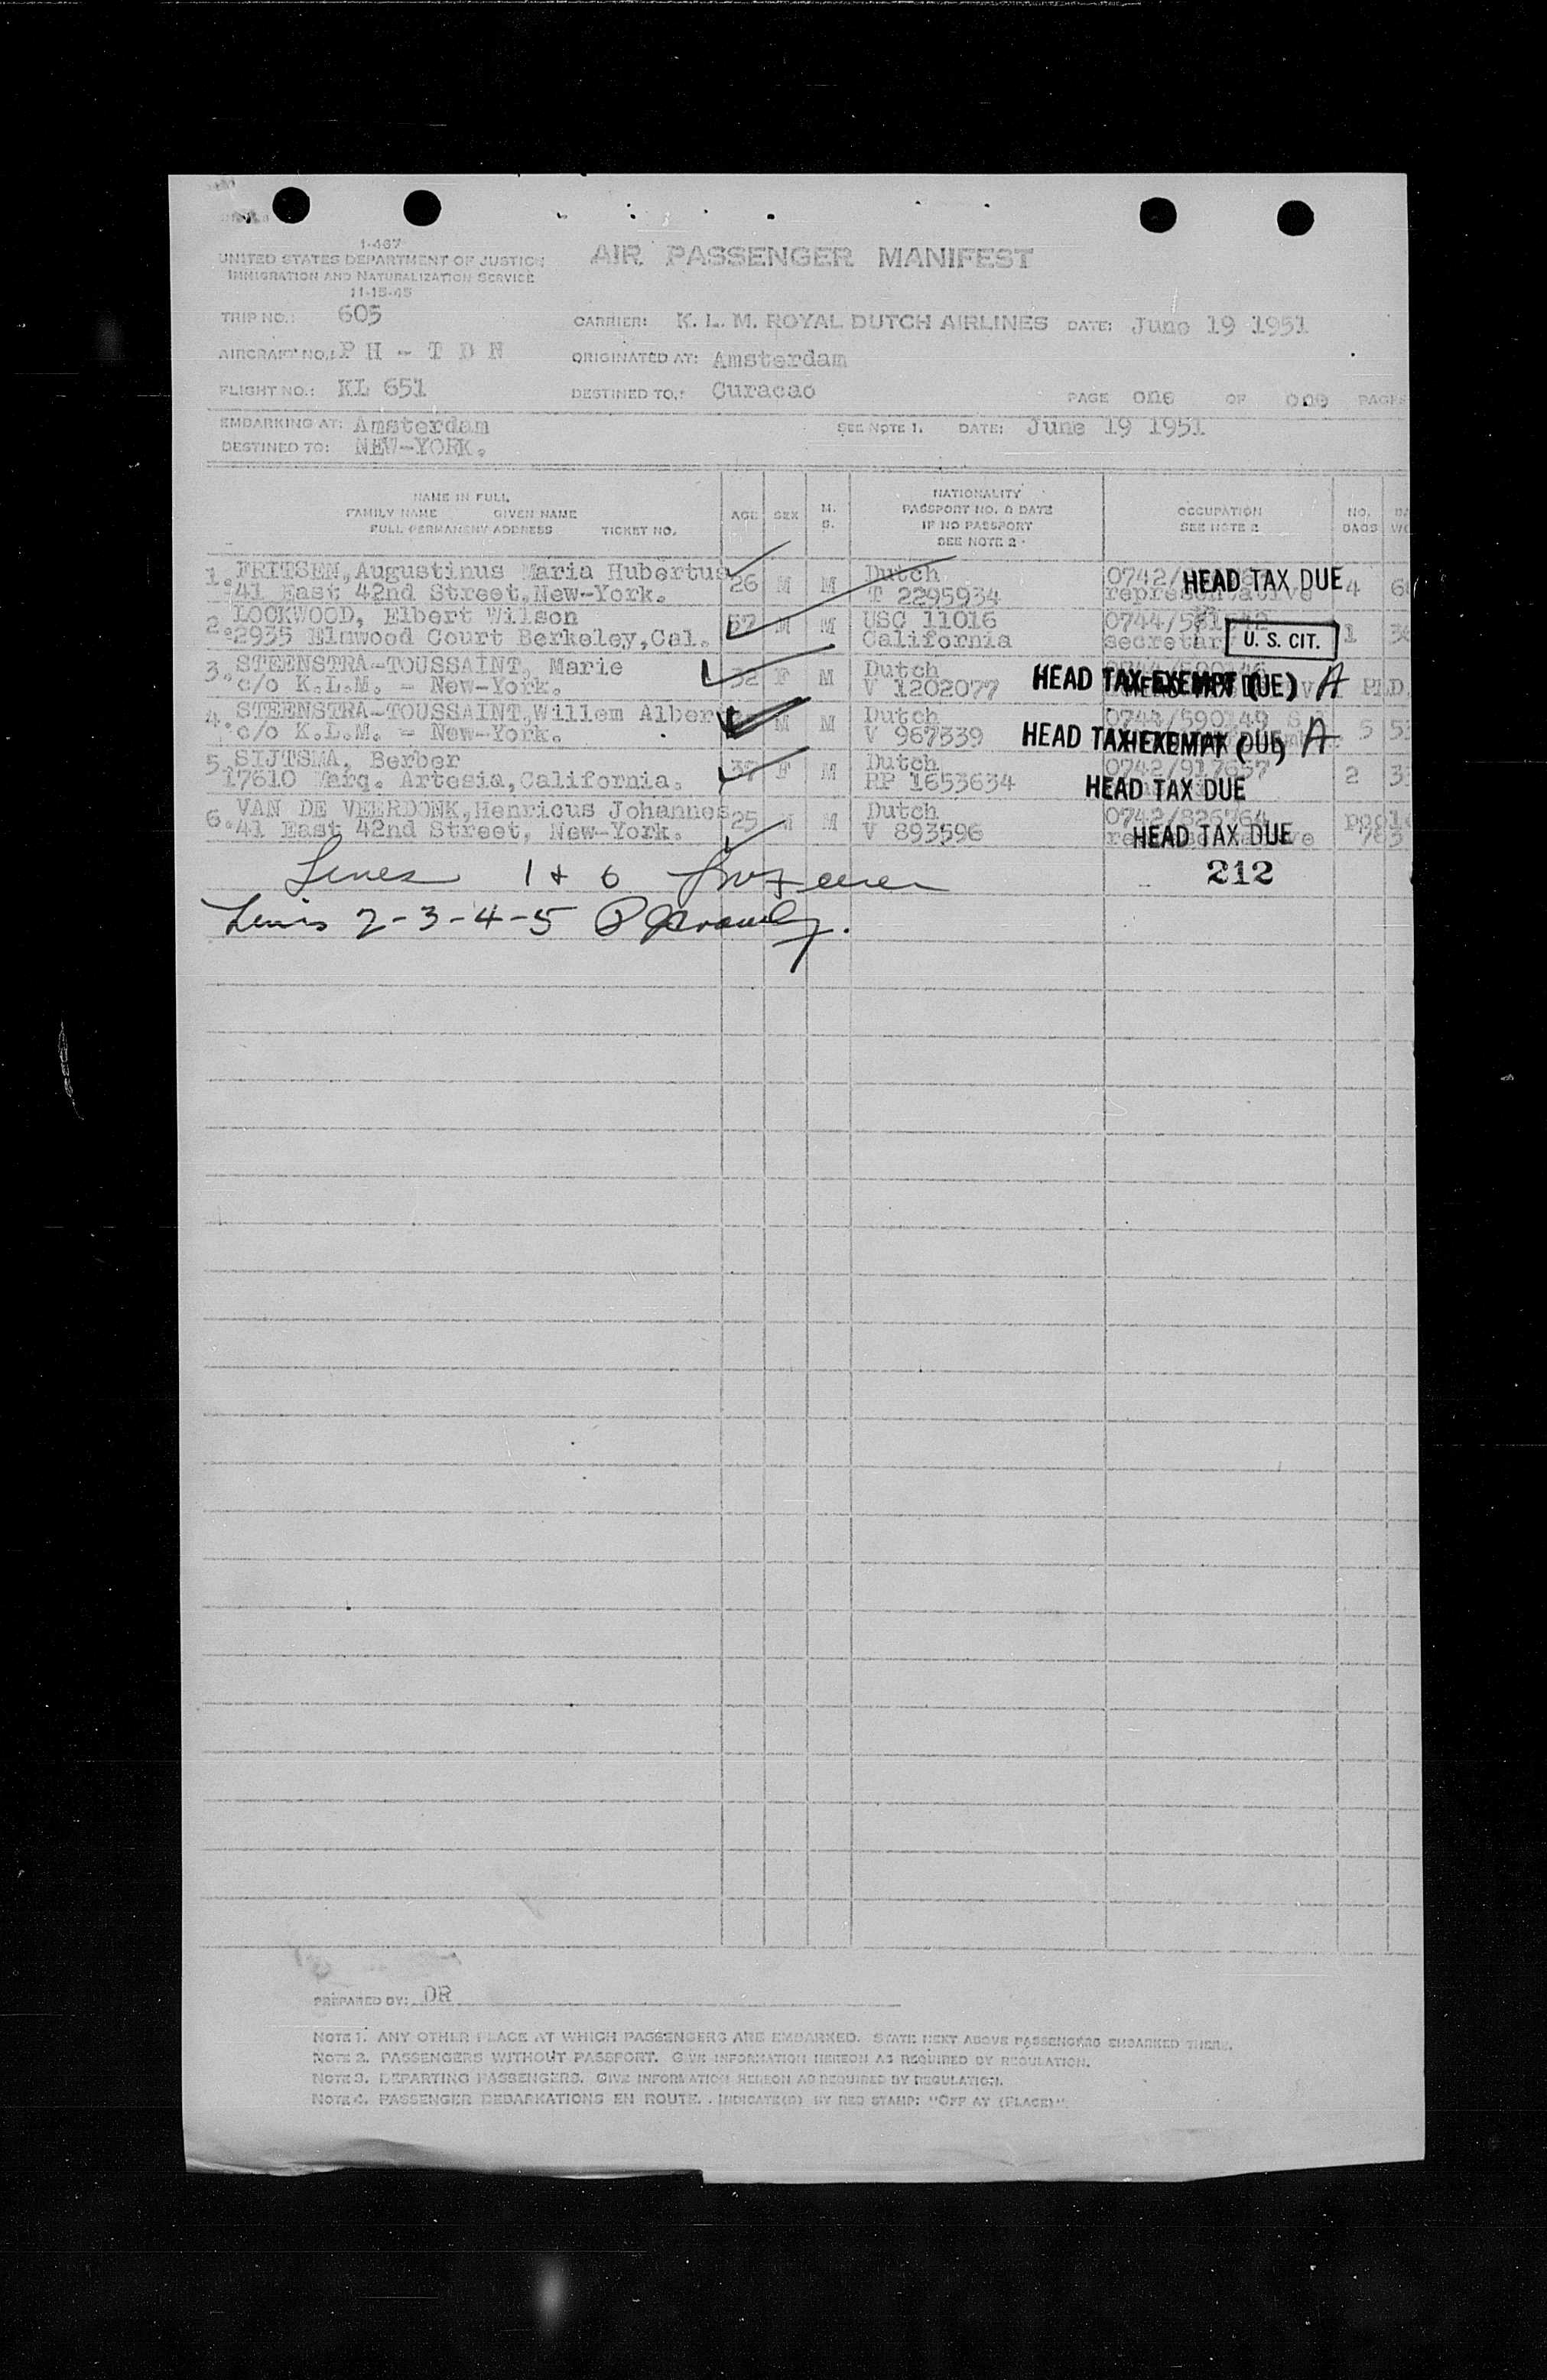 I-467
UNITED STATES DEPARTMENT OF JUSTICE
IMMIGRATION AND NATURALIZATION SERVICE
11-15-45
AIR PASSENGER MANIFEST
TRIP NO.: 605
CARRIER: K. L. M. ROYAL DUTCH AIRLINES DATE: June 19 1951
AIRCRAFT NO.: P H - T D N
ORIGINATED AT: Amsterdam
FLIGHT NO.: KL 651
DESTINED TO.: Curacao
PAGE one OF one PAGES
EMBARKING AT: Amsterdam
SEE NOTE 1. DATE: June 19 1951
DESTINED TO: NEW-YORK.
NAME IN FULL
FAMILY NAME GIVEN NAME
FULL PERMANENT ADDRESS TICKET NO.
AGE SEX M. S.
NATIONALITY
PASSPORT NO. & DATE
IF NO PASSPORT
SEE NOTE 2
OCCUPATION
SEE NOTE 2
NO. BAGS
1. FRITSEN, Augustinus Maria Hubertus 26 M M Dutch 0742/ HEAD TAX DUE 4
41 East 42nd Street, New-York. T 2295934 representative
2. LOCKWOOD, Elbert Wilson 57 M M USC 11016 0744/581 1
2935 Elmwood Court Berkeley, Cal. California secretary U. S. CIT.
3. STEENSTRA-TOUSSAINT, Marie 32 F M Dutch
c/o K.L.M. - New-York. V 1202077 HEAD TAX EXEMPT (DUE) A
4. STEENSTRA-TOUSSAINT, Willem Alber M M Dutch 0744/590 5
c/o K.L.M. - New-York. V 967339 HEAD TAX EXEMPT (DUE) A
5. SIJTSMA, Berber 37 F M Dutch 0742/917657 2
17610 Marq. Artesia, California. RP 1653634 HEAD TAX DUE
6. VAN DE VEERDONK, Henricus Johannes 25 M M Dutch 0742/826764
41 East 42nd Street, New-York. V 893596 HEAD TAX DUE
Lines 1 + 6
212
Lines 2-3-4-5
PREPARED BY: OR
NOTE 1. ANY OTHER PLACE AT WHICH PASSENGERS ARE EMBARKED. STATE NEXT ABOVE PASSENGERS EMBARKED THERE.
NOTE 2. PASSENGERS WITHOUT PASSPORT. GIVE INFORMATION HEREON AS REQUIRED BY REGULATION.
NOTE 3. DEPARTING PASSENGERS. GIVE INFORMATION HEREON AS REQUIRED BY REGULATION.
NOTE 4. PASSENGER DEBARKATIONS EN ROUTE. INDICATE(D) BY RED STAMP: "OFF AT (PLACE)".